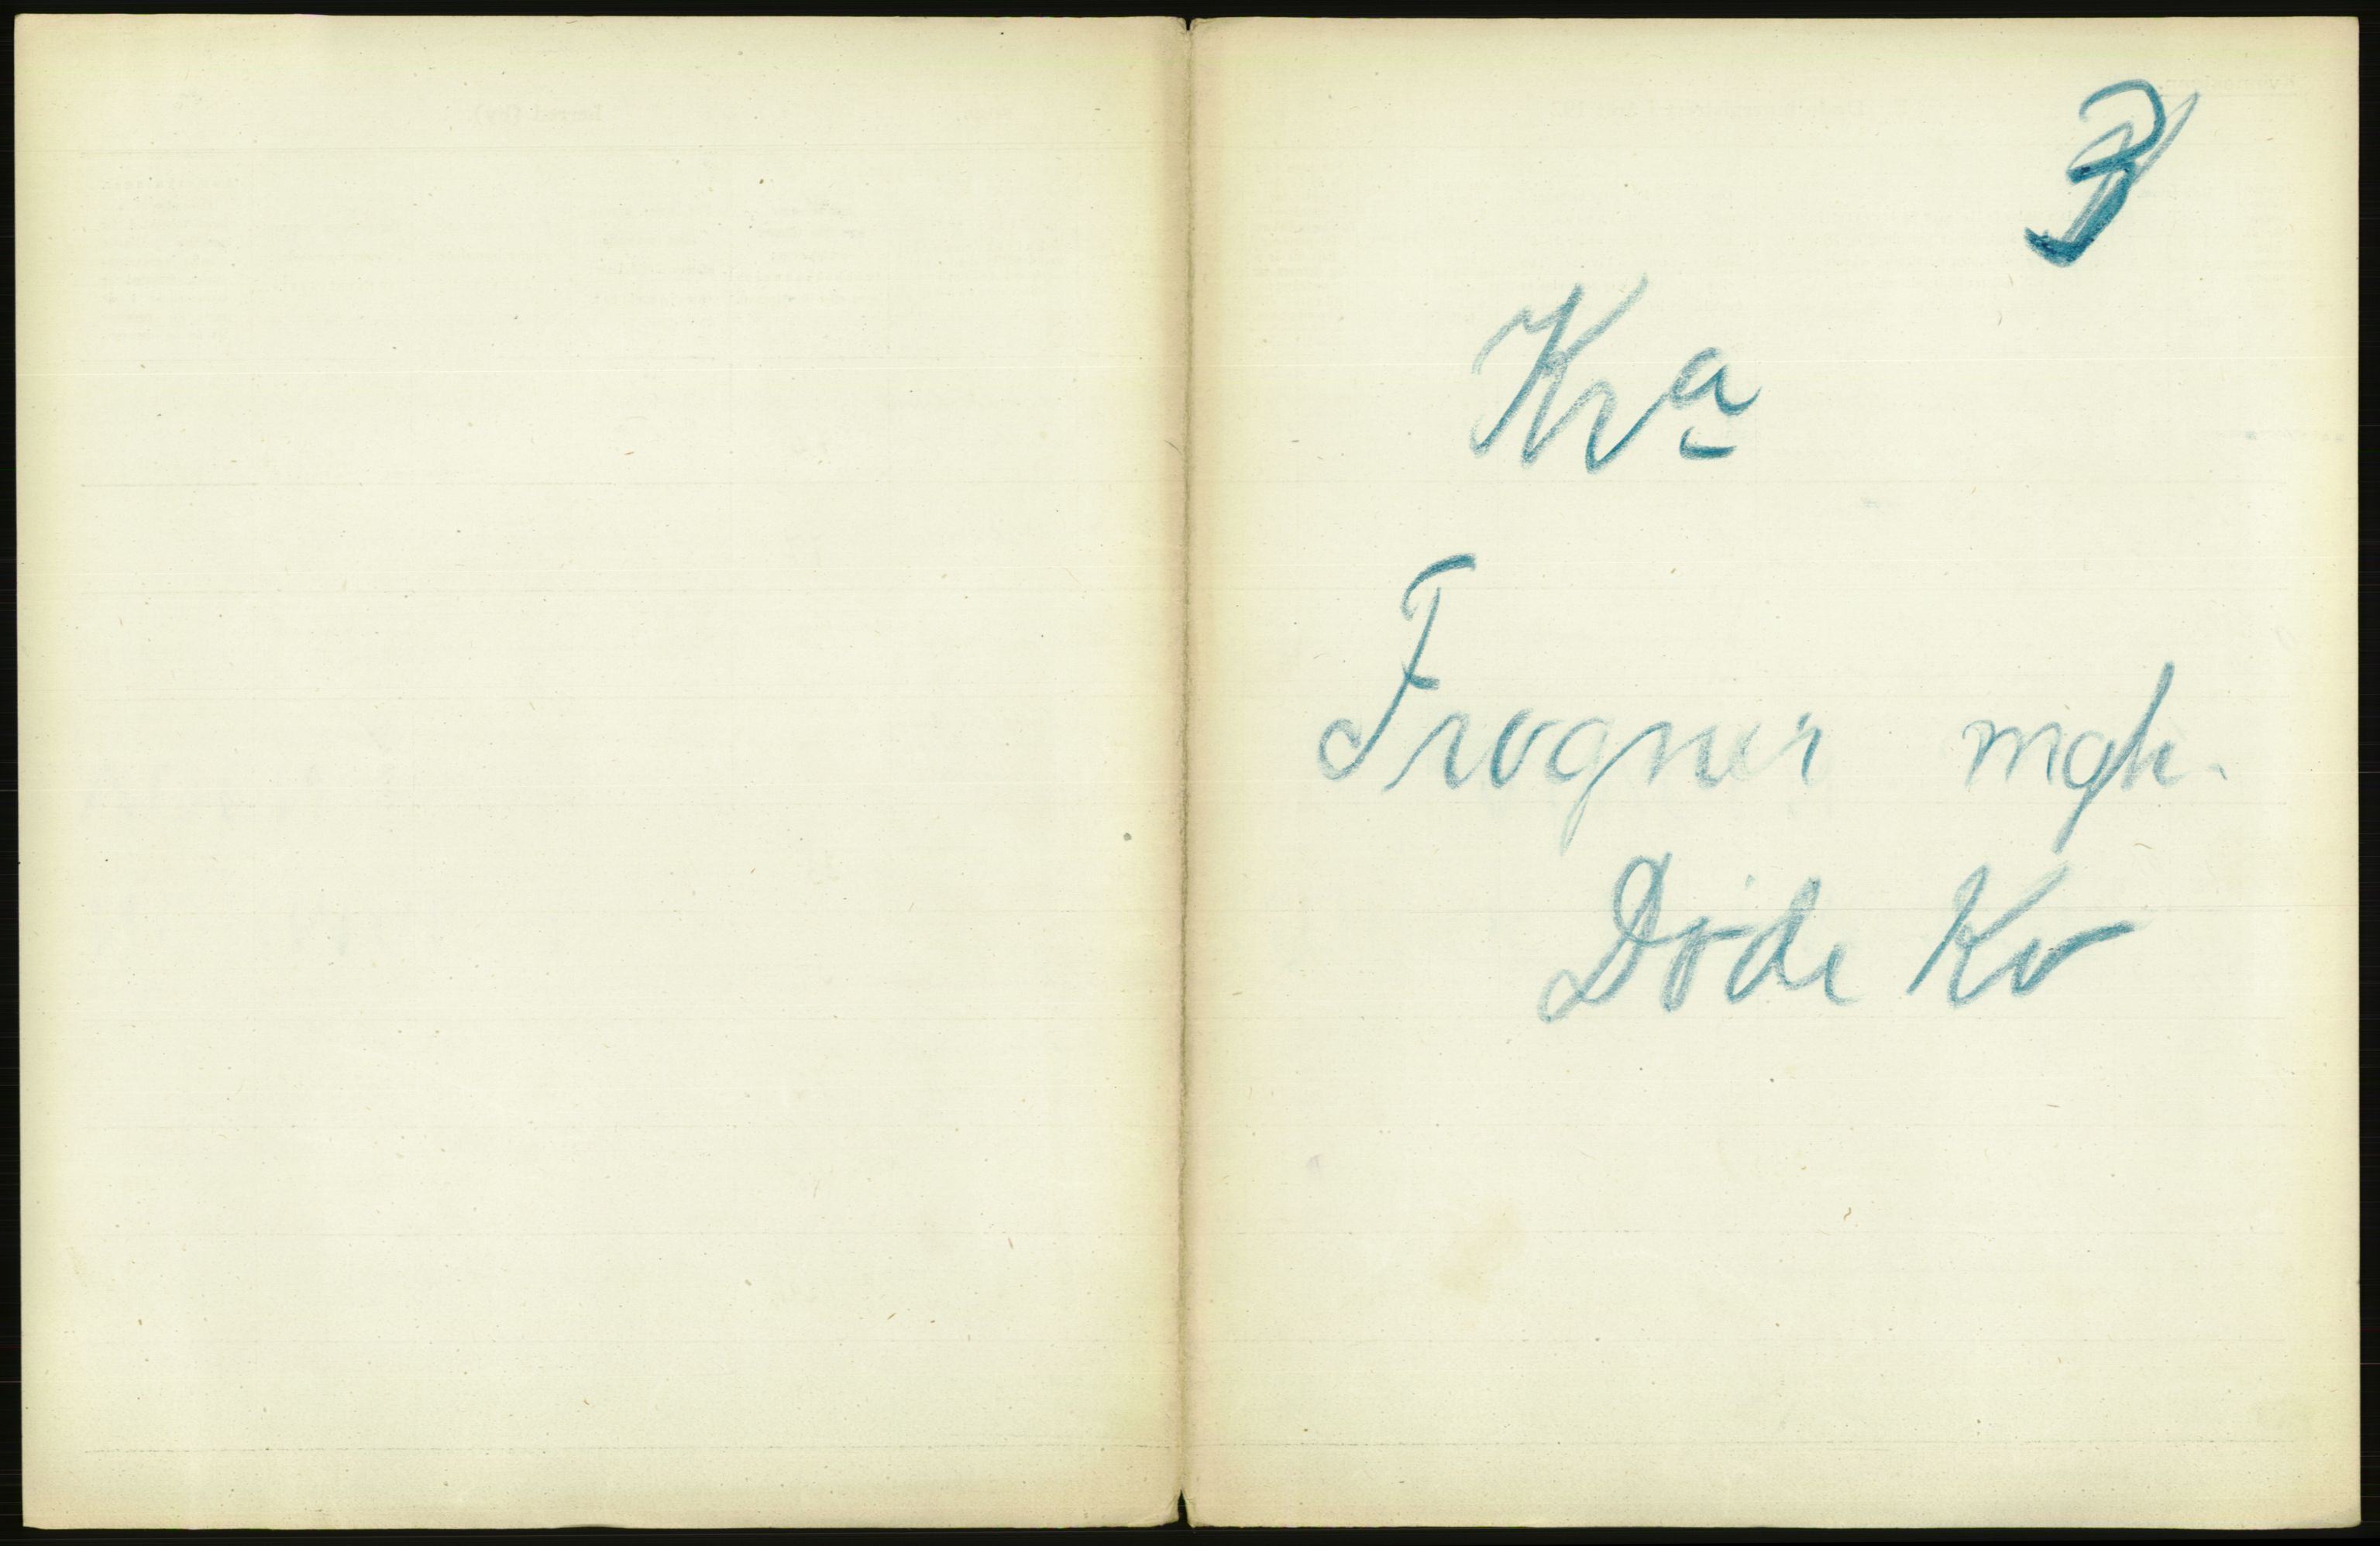 3
Kra
Frogner mgh.
Döde Kv